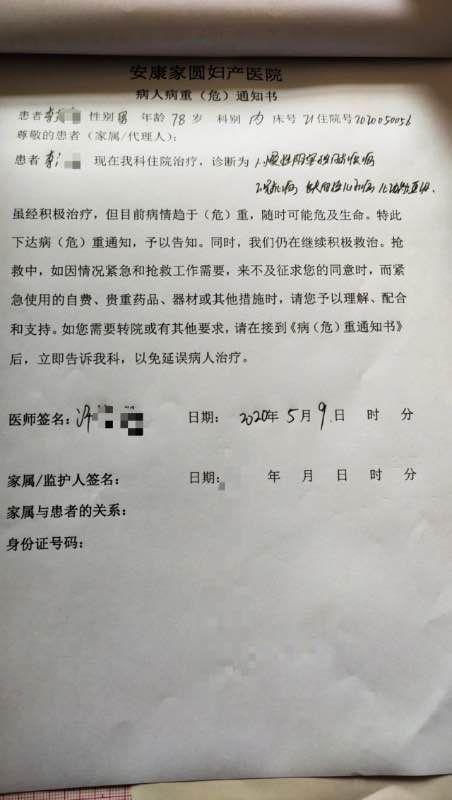 安康家圆妇产医院
病人病重（危）通知书
患者李 性别男 年龄78岁 科别内 床号21住院号2020050056
尊敬的患者（家属/代理人）：
患者李 现在我科住院治疗，诊断为1.慢性阻塞性肺疾病
2.冠心病 缺血性心肌病
虽经积极治疗，但目前病情趋于（危）重，随时可能危及生命。特此
下达病（危）重通知，予以告知。同时，我们仍在继续积极救治。抢
救中，如因情况紧急和抢救工作需要，来不及征求您的同意时，而紧
急使用的自费、贵重药品、器材或其他措施时，请您予以理解、配合
和支持。如您需要转院或有其他要求，请在接到《病（危）重通知书》
后，立即告诉我科，以免延误病人治疗。
医师签名： 日期： 2020年5月9日 时 分
家属/监护人签名： 日期： 年 月 日 时 分
家属与患者的关系：
身份证号码：